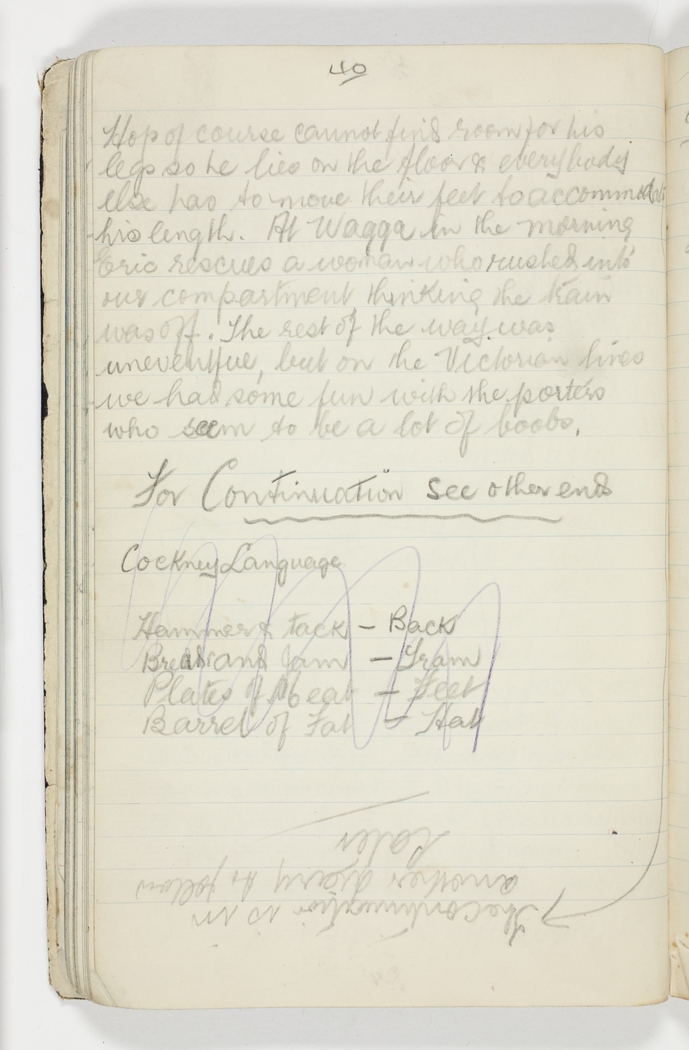 40
Hop of course cannot find room for his
legs so he lies on the floor & everybody
else has to move their feet to accommodate
his length. At Wagga in the morning
Eric rescues a woman who rushed into
our compartment thinking the train
was off. The rest of the way was
uneventful, but on the Victorian lines
we had some fun with the porters
who seem to be a lot of boobs.
For Continuation see other end
Cockney Language
Hammer & tack – Back
Bread and Jam – Tram
Plates of Meat – Feet
Barrel of Fat – Hat
The continuation is in
another diary to follow
Later